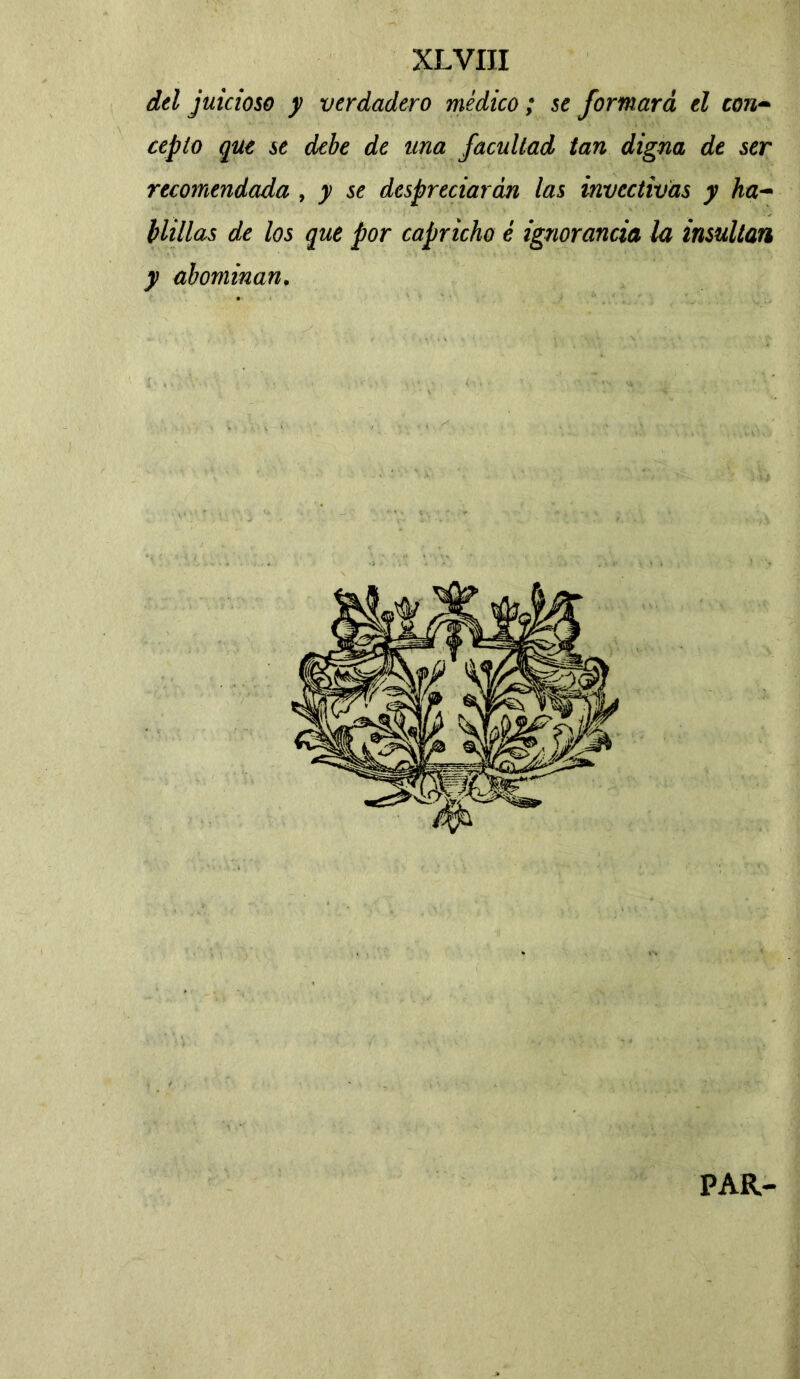 XLVIII
del juicioso y verdadero médico ; se formará el con-
cepto que se debe de una facultad tan digna de ser
recomendada , y se despreciarán las invectivas y ha-
blillas de los que por capricho é ignorancia la insultan
y abominan.
PAR-